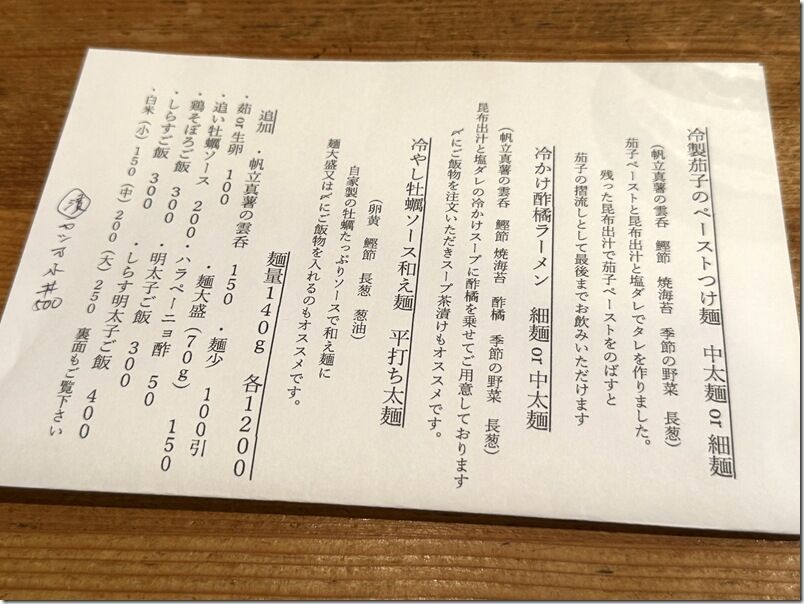 冷製茄子のペーストつけ麺　中太麺 or 細麺
（帆立真薯の雲呑　鰹節　焼海苔　季節の野菜　長葱）
茄子ペーストと昆布出汁と塩ダレでタレを作りました。
残った昆布出汁で茄子ペーストをのばすと
茄子の摺流しとして最後までお飲みいただけます
冷かけ酢橘ラーメン　細麺 or 中太麺
（帆立真薯の雲呑　鰹節　焼海苔　酢橘　季節の野菜　長葱）
昆布出汁と塩ダレの冷かけスープに酢橘を乗せてご用意しております
〆にご飯物を注文いただきスープ茶漬けもオススメです。
冷やし牡蠣ソース和え麺　平打ち太麺
（卵黄　鰹節　長葱　葱油）
自家製の牡蠣たっぷりソースで和え麺に
麺大盛又は〆にご飯物を入れるのもオススメです。
麺量140g　各1200
追加　・帆立真薯の雲呑　150　・麺少　100引
・茹 or 生卵　100　・麺大盛（70g）　150
・追い牡蠣ソース　200　・ハラペーニョ酢　50
・鶏そぼろご飯　300　・明太子ご飯　300
・しらすご飯　300　・しらす明太子ご飯　400
・白米（小）150（中）200（大）250　裏面もご覧下さい
丼
500